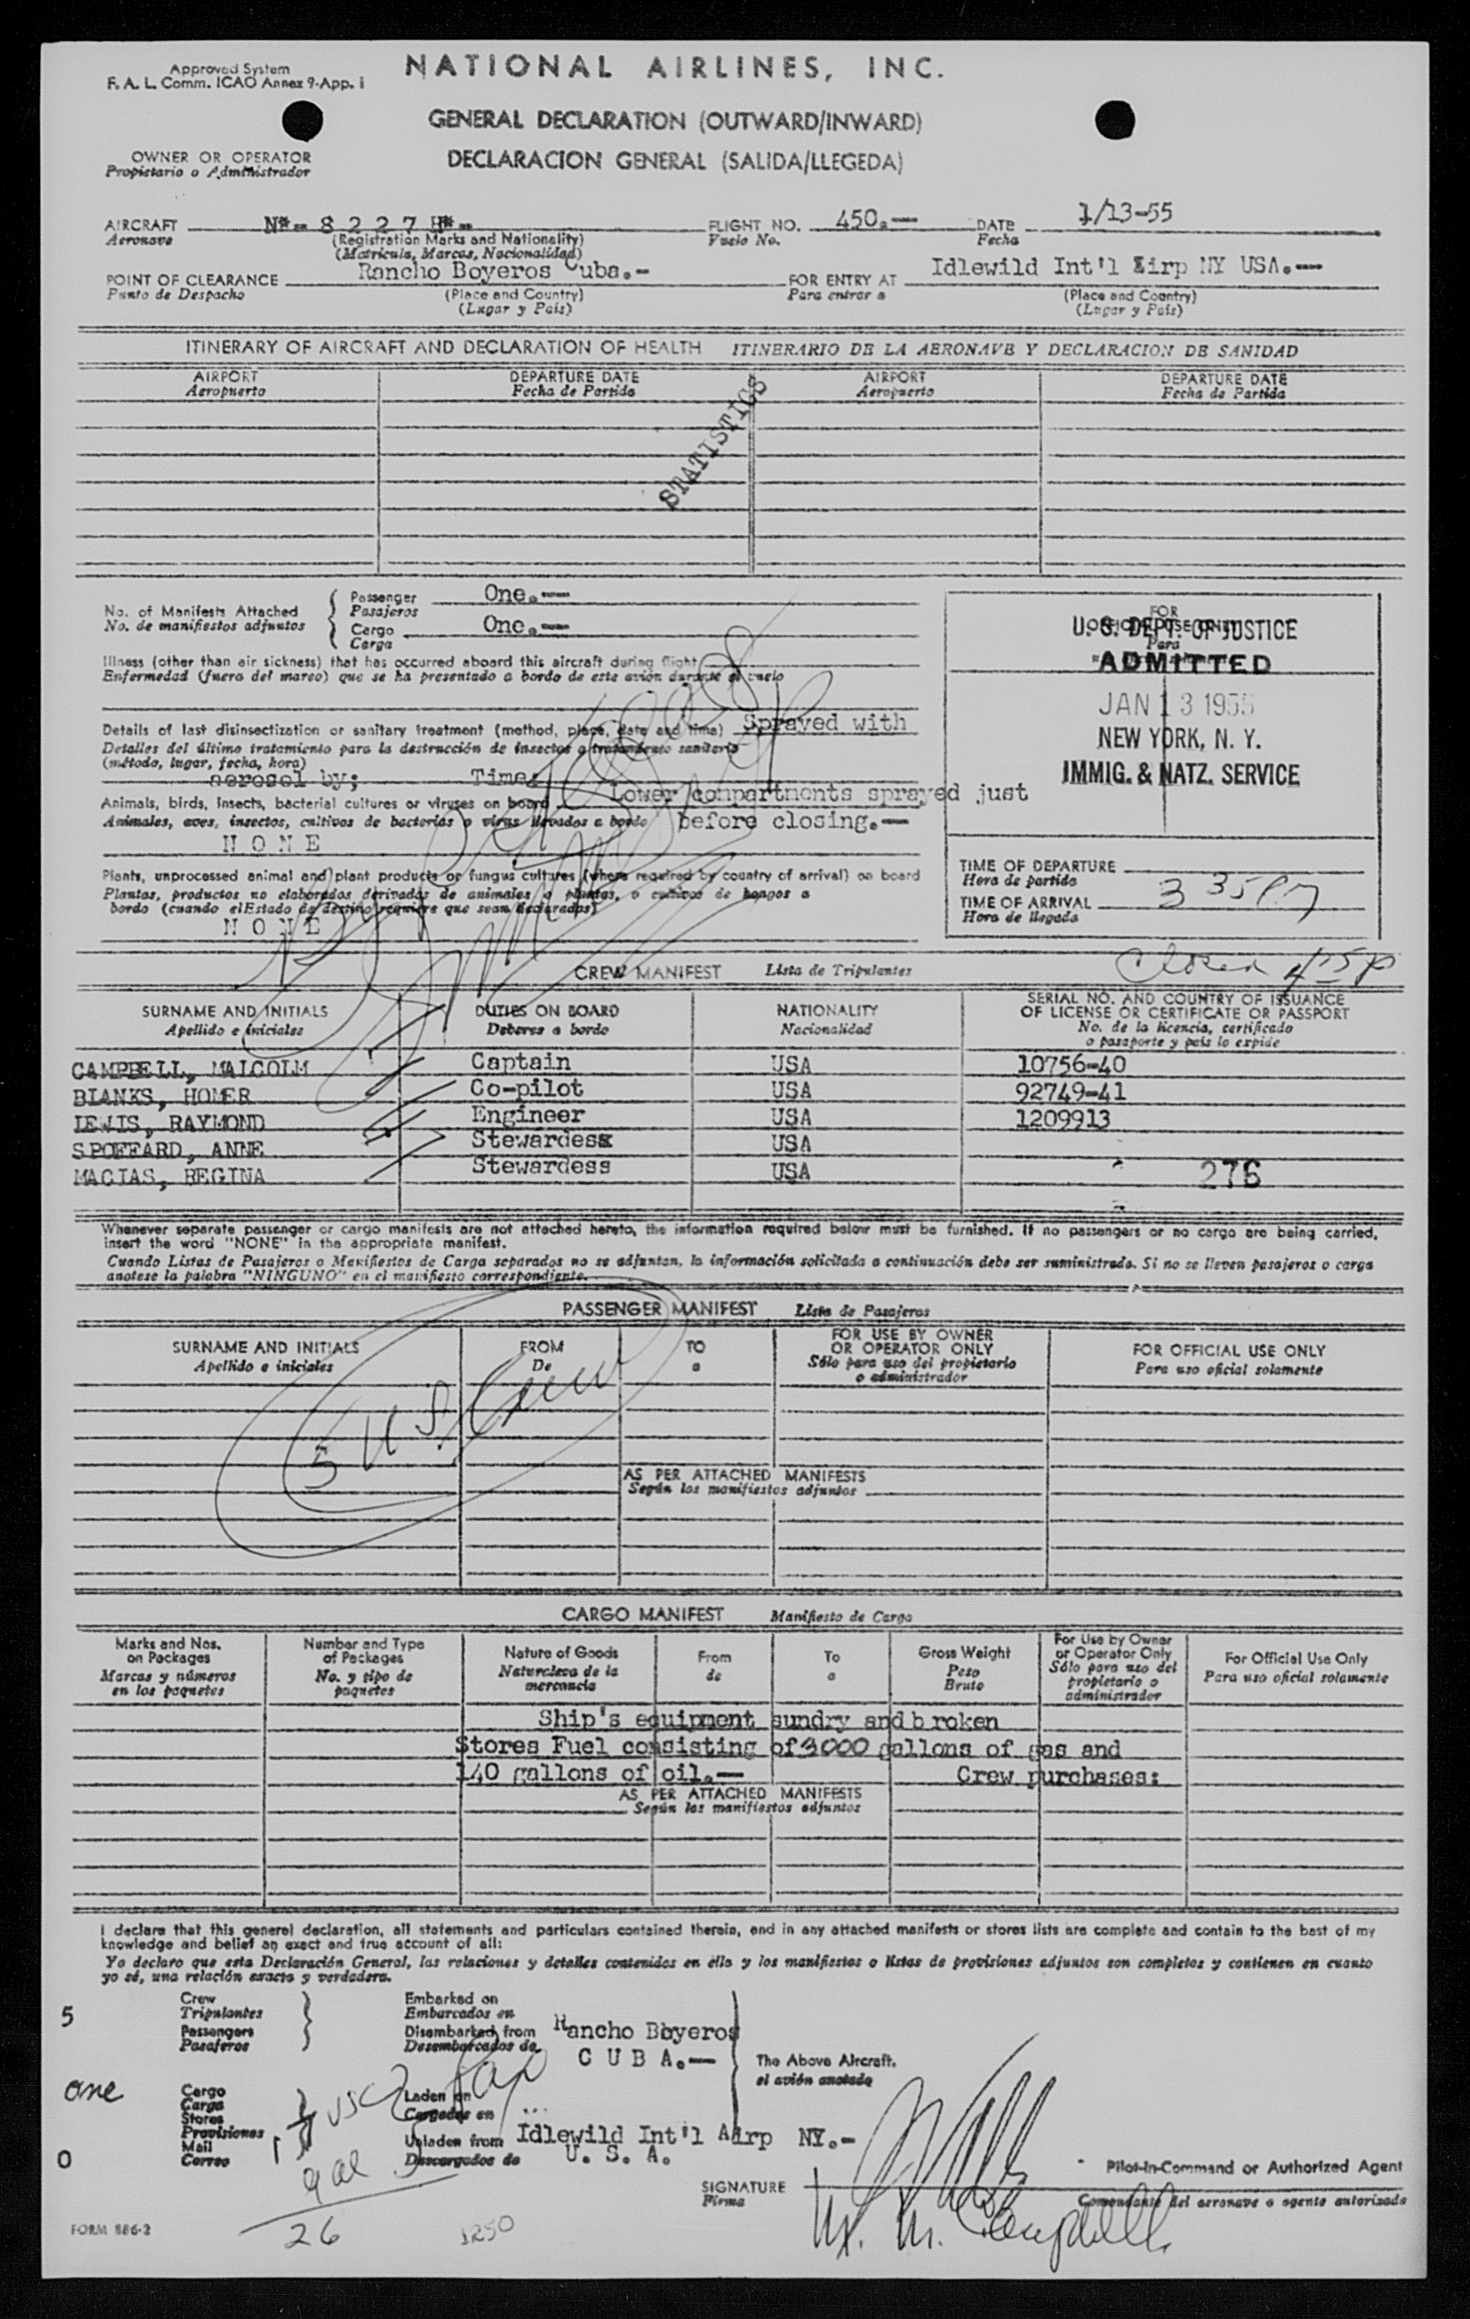 Approved System
F. A. L. Comm. ICAO Annex 9-App. i
NATIONAL AIRLINES, INC.
GENERAL DECLARATION (OUTWARD/INWARD)
DECLARACION GENERAL (SALIDA/LLEGEDA)
OWNER OR OPERATOR
Propietario o Administrador
AIRCRAFT N*-- 8 2 2 7 H*-- FLIGHT NO. 450.-- DATE 1/13-55
Aeronave (Registration Marks and Nationality) Vuelo No. Fecha
(Matricula, Marcas, Nacionalidad)
POINT OF CLEARANCE Rancho Boyeros Cuba.- FOR ENTRY AT Idlewild Int'l Airp NY USA.--
Punto de Despacho (Place and Country) Para entrar a (Place and Country)
(Lugar y Pais) (Lugar y Pais)
ITINERARY OF AIRCRAFT AND DECLARATION OF HEALTH ITINERARIO DE LA AERONAVE Y DECLARACION DE SANIDAD
AIRPORT DEPARTURE DATE AIRPORT DEPARTURE DATE
Aeropuerto Fecha de Partida Aeropuerto Fecha de Partida
STATISTICS
No. of Manifests Attached Passenger One.--
No. de manifiestos adjuntos Pasajeros
Cargo One.--
Carga
Illness (other than air sickness) that has occurred aboard this aircraft during flight
Enfermedad (fuera del mareo) que se ha presentado a bordo de este avión durante el vuelo
Details of last disinsectization or sanitary treatment (method, place, date and time) Sprayed with
Detalles del último tratamiento para la destrucción de insectos o tratamiento sanitario
(método, lugar, fecha, hora)
aerosol by; Time:
Lower compartments sprayed just
Animals, birds, insects, bacterial cultures or viruses on board
Animales, aves, insectos, cultivos de bacterias o virus llevados a bordo before closing.--
N O N E
Plants, unprocessed animal and plant products or fungus cultures (where required by country of arrival) on board
Plantas, productos no elaborados derivados de animales o plantas, o cultivos de hongos a
bordo (cuando el Estado de destino requiere que sean declarados)
N O N E
FOR
Para
U. S. DEPT. OF JUSTICE
ADMITTED
JAN 13 1955
NEW YORK, N. Y.
IMMIG. & NATZ. SERVICE
TIME OF DEPARTURE
Hora de partida
TIME OF ARRIVAL 3 35 PM
Hora de llegada
Closed 415P
CREW MANIFEST Lista de Tripulantes
SURNAME AND INITIALS DUTIES ON BOARD NATIONALITY SERIAL NO. AND COUNTRY OF ISSUANCE
Apellido e iniciales Deberes a bordo Nacionalidad OF LICENSE OR CERTIFICATE OR PASSPORT
No. de la licencia, certificado
o pasaporte y pais lo expide
CAMPBELL, MALCOLM Captain USA 10756-40
BIANKS, HOMER Co-pilot USA 92749-41
LEWIS, RAYMOND Engineer USA 1209913
SPOFFARD, ANNE Stewardess USA
MACIAS, REGINA Stewardess USA 276
Whenever separate passenger or cargo manifests are not attached hereto, the information required below must be furnished. If no passengers or no cargo are being carried,
insert the word "NONE" in the appropriate manifest.
Cuando Listas de Pasajeros o Manifiestos de Carga separados no se adjuntan, la información solicitada a continuación debe ser suministrada. Si no se lleven pasajeros o carga
anotese la palabra "NINGUNO" en el manifiesto correspondiente.
PASSENGER MANIFEST Lista de Pasajeros
SURNAME AND INITIALS FROM TO FOR USE BY OWNER FOR OFFICIAL USE ONLY
Apellido e iniciales De a OR OPERATOR ONLY Para uso oficial solamente
Sólo para uso del propietario
o administrador
5 U S. Crew
AS PER ATTACHED MANIFESTS
Según los manifiestos adjuntos
CARGO MANIFEST Manifiesto de Carga
Marks and Nos. on Packages Number and Type of Packages Nature of Goods From To Gross Weight For Use by Owner or Operator Only For Official Use Only
Marcas y números en los paquetes No. y tipo de paquetes Naturaleza de la mercancia de a Peso Bruto Sólo para uso del propietario o administrador Para uso oficial solamente
Ship's equipment sundry and broken
Stores Fuel consisting of 3000 gallons of gas and
140 gallons of oil.-- Crew purchases:
AS PER ATTACHED MANIFESTS
Según los manifiestos adjuntos
I declare that this general declaration, all statements and particulars contained therein, and in any attached manifests or stores lists are complete and contain to the best of my
knowledge and belief an exact and true account of all:
Yo declaro que esta Declaración General, las relaciones y detalles contenidos en ella y los manifiestos o listas de provisiones adjuntos son completos y contienen en cuanto
yo sé, una relación exacta y verdadera.
5 Crew Embarked on
Tripulantes Embarcados en
Passengers Disembarked from Rancho Boyeros
Pasajeros Desembarcados de C U B A.--
The Above Aircraft.
el avión anotado
one Cargo Laden on
Carga Cargados en
Stores
Provisiones Unladen from Idlewild Int'l Airp NY.-
0 Mail Descargados de U. S. A.
Correo
Pilot-in-Command or Authorized Agent
SIGNATURE
Firma Comandante del aeronave o agente autorizado
M. Campbell
FORM 886-2
26
1250